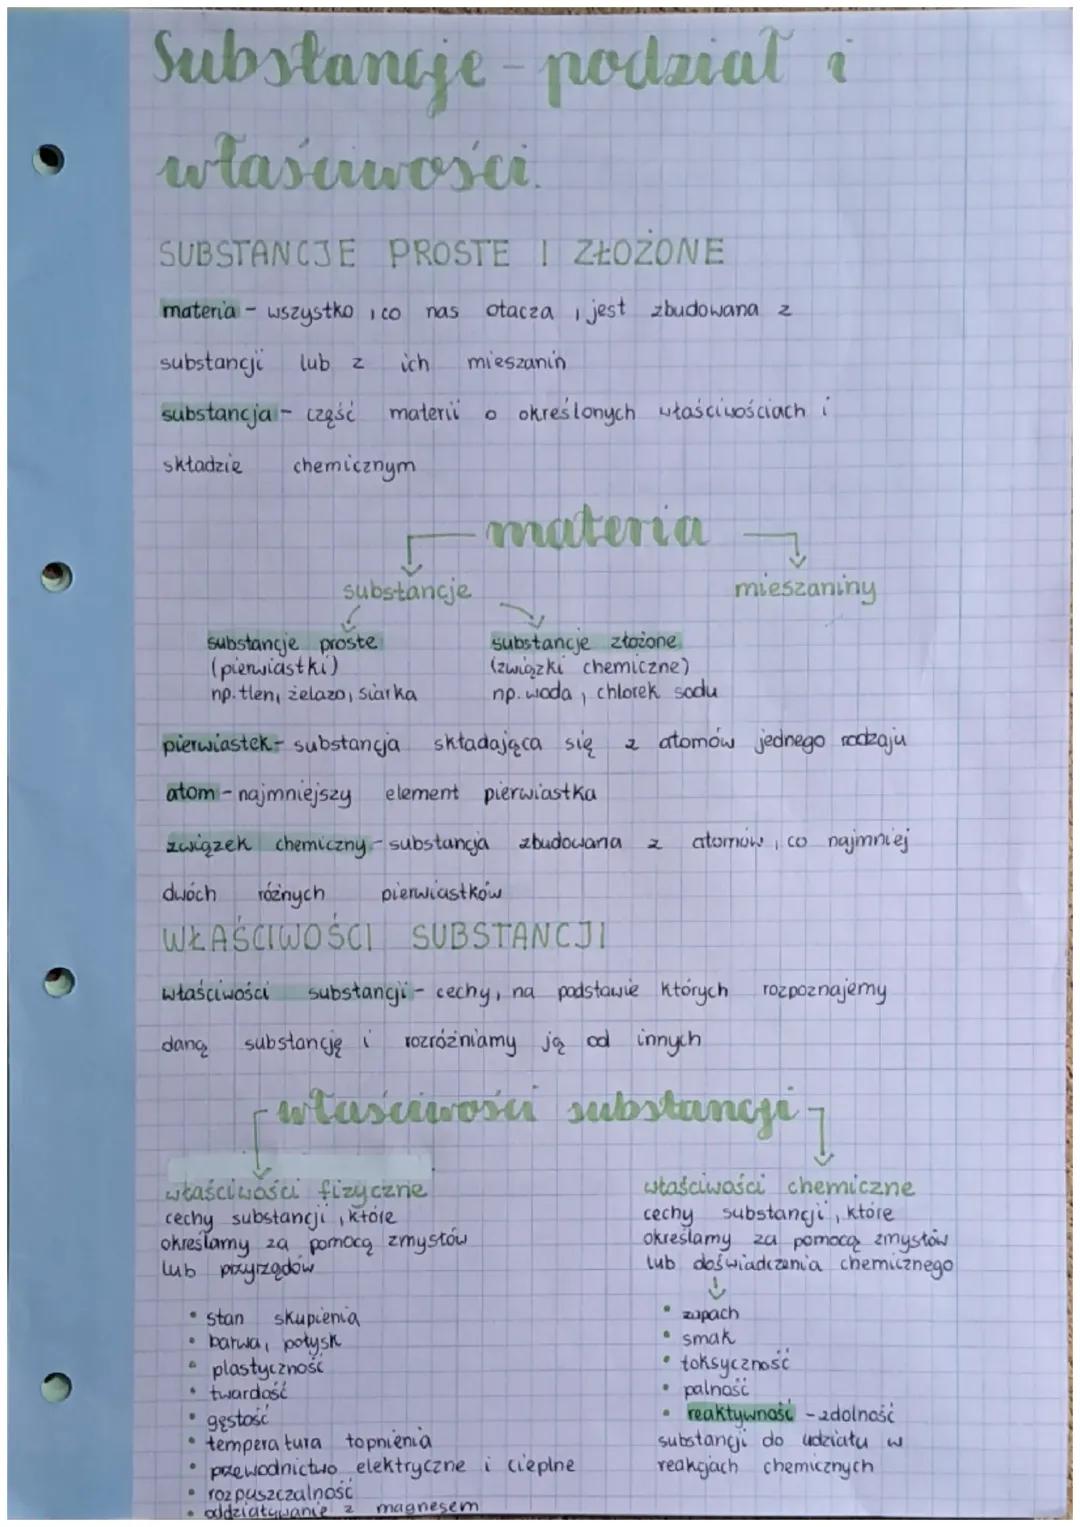 Substancje - podział i
właściwości.
SUBSTANCJE PROSTE I ZŁOŻONE
materia - wszystko, co nas otacza, jest zbudowana z
substancji lub z ich mieszanin
substancja - część materii o określonych właściwościach i
składzie chemicznym
materia
substancje mieszaniny
substancje proste
(pierwiastki)
np. tlen, żelazo, siarka
substancje złożone
(związki chemiczne)
np. woda, chlorek sodu
pierwiastek - substancja składająca się z atomów jednego rodzaju
atom - najmniejszy element pierwiastka
związek chemiczny - substancja zbudowana z atomów, co najmniej
dwóch różnych pierwiastków
WŁAŚCIWOŚCI SUBSTANCJI
właściwości substancji - cechy, na podstawie których rozpoznajemy
daną substancję i rozróżniamy ją od innych
właściwości substancji
właściwości fizyczne
cechy substancji, które
określamy za pomocą zmysłów
lub przyrządów
• stan skupienia
• barwa, połysk
• plastyczność
• twardość
• gęstość
• temperatura topnienia
• przewodnictwo elektryczne i cieplne
• rozpuszczalność
• oddziaływanie z magnesem
właściwości chemiczne
cechy substancji, które
określamy za pomocą zmysłów
lub doświadczenia chemicznego
• zapach
• smak
• toksyczność
• palność
• reaktywność - zdolność
substancji do udziału w
reakcjach chemicznych